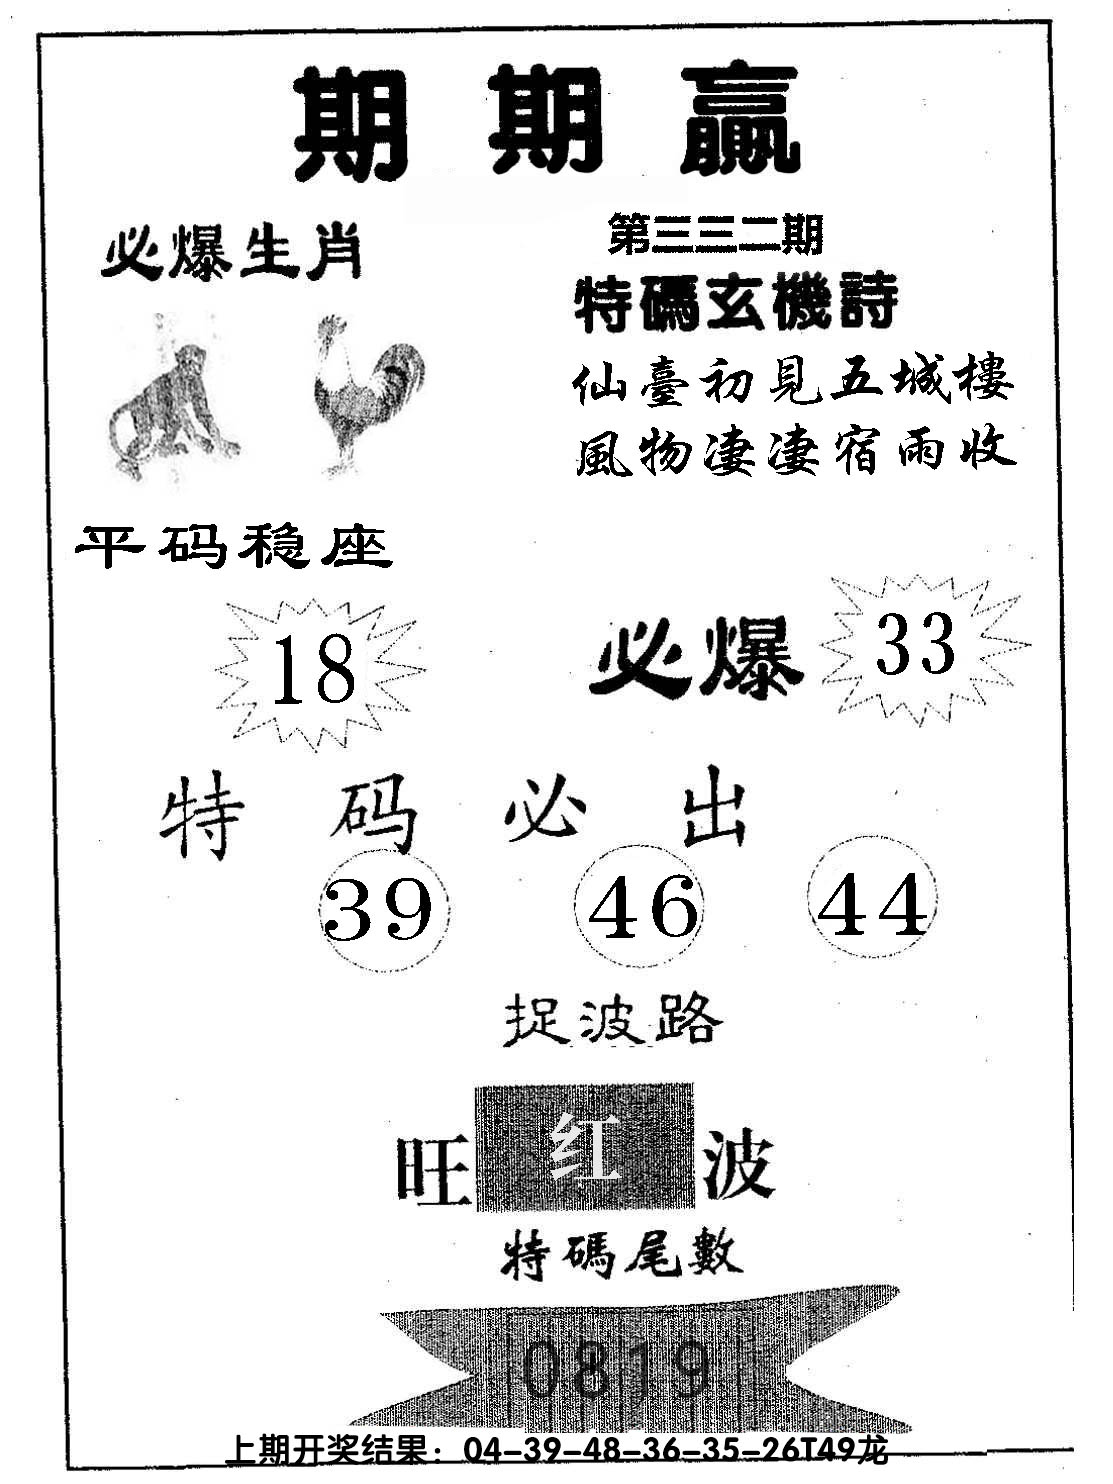 期期赢
必爆生肖
第三三二期
特碼玄機詩
仙臺初見五城樓
風物凄凄宿雨收
平码稳座
18
必爆
33
特码必出
39 46 44
捉波路
旺 红 波
特碼尾數
0819
上期开奖结果：04-39-48-36-35-26T49龙